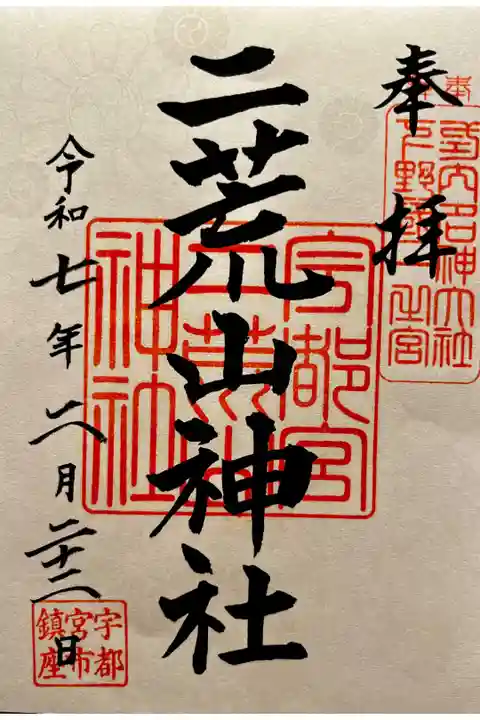 奉拝
式内名神大社
下野國一之宮
二荒山神社
宇都宮
二荒山
神社
令和七年二月二十二日
宇都
宮市
鎮座